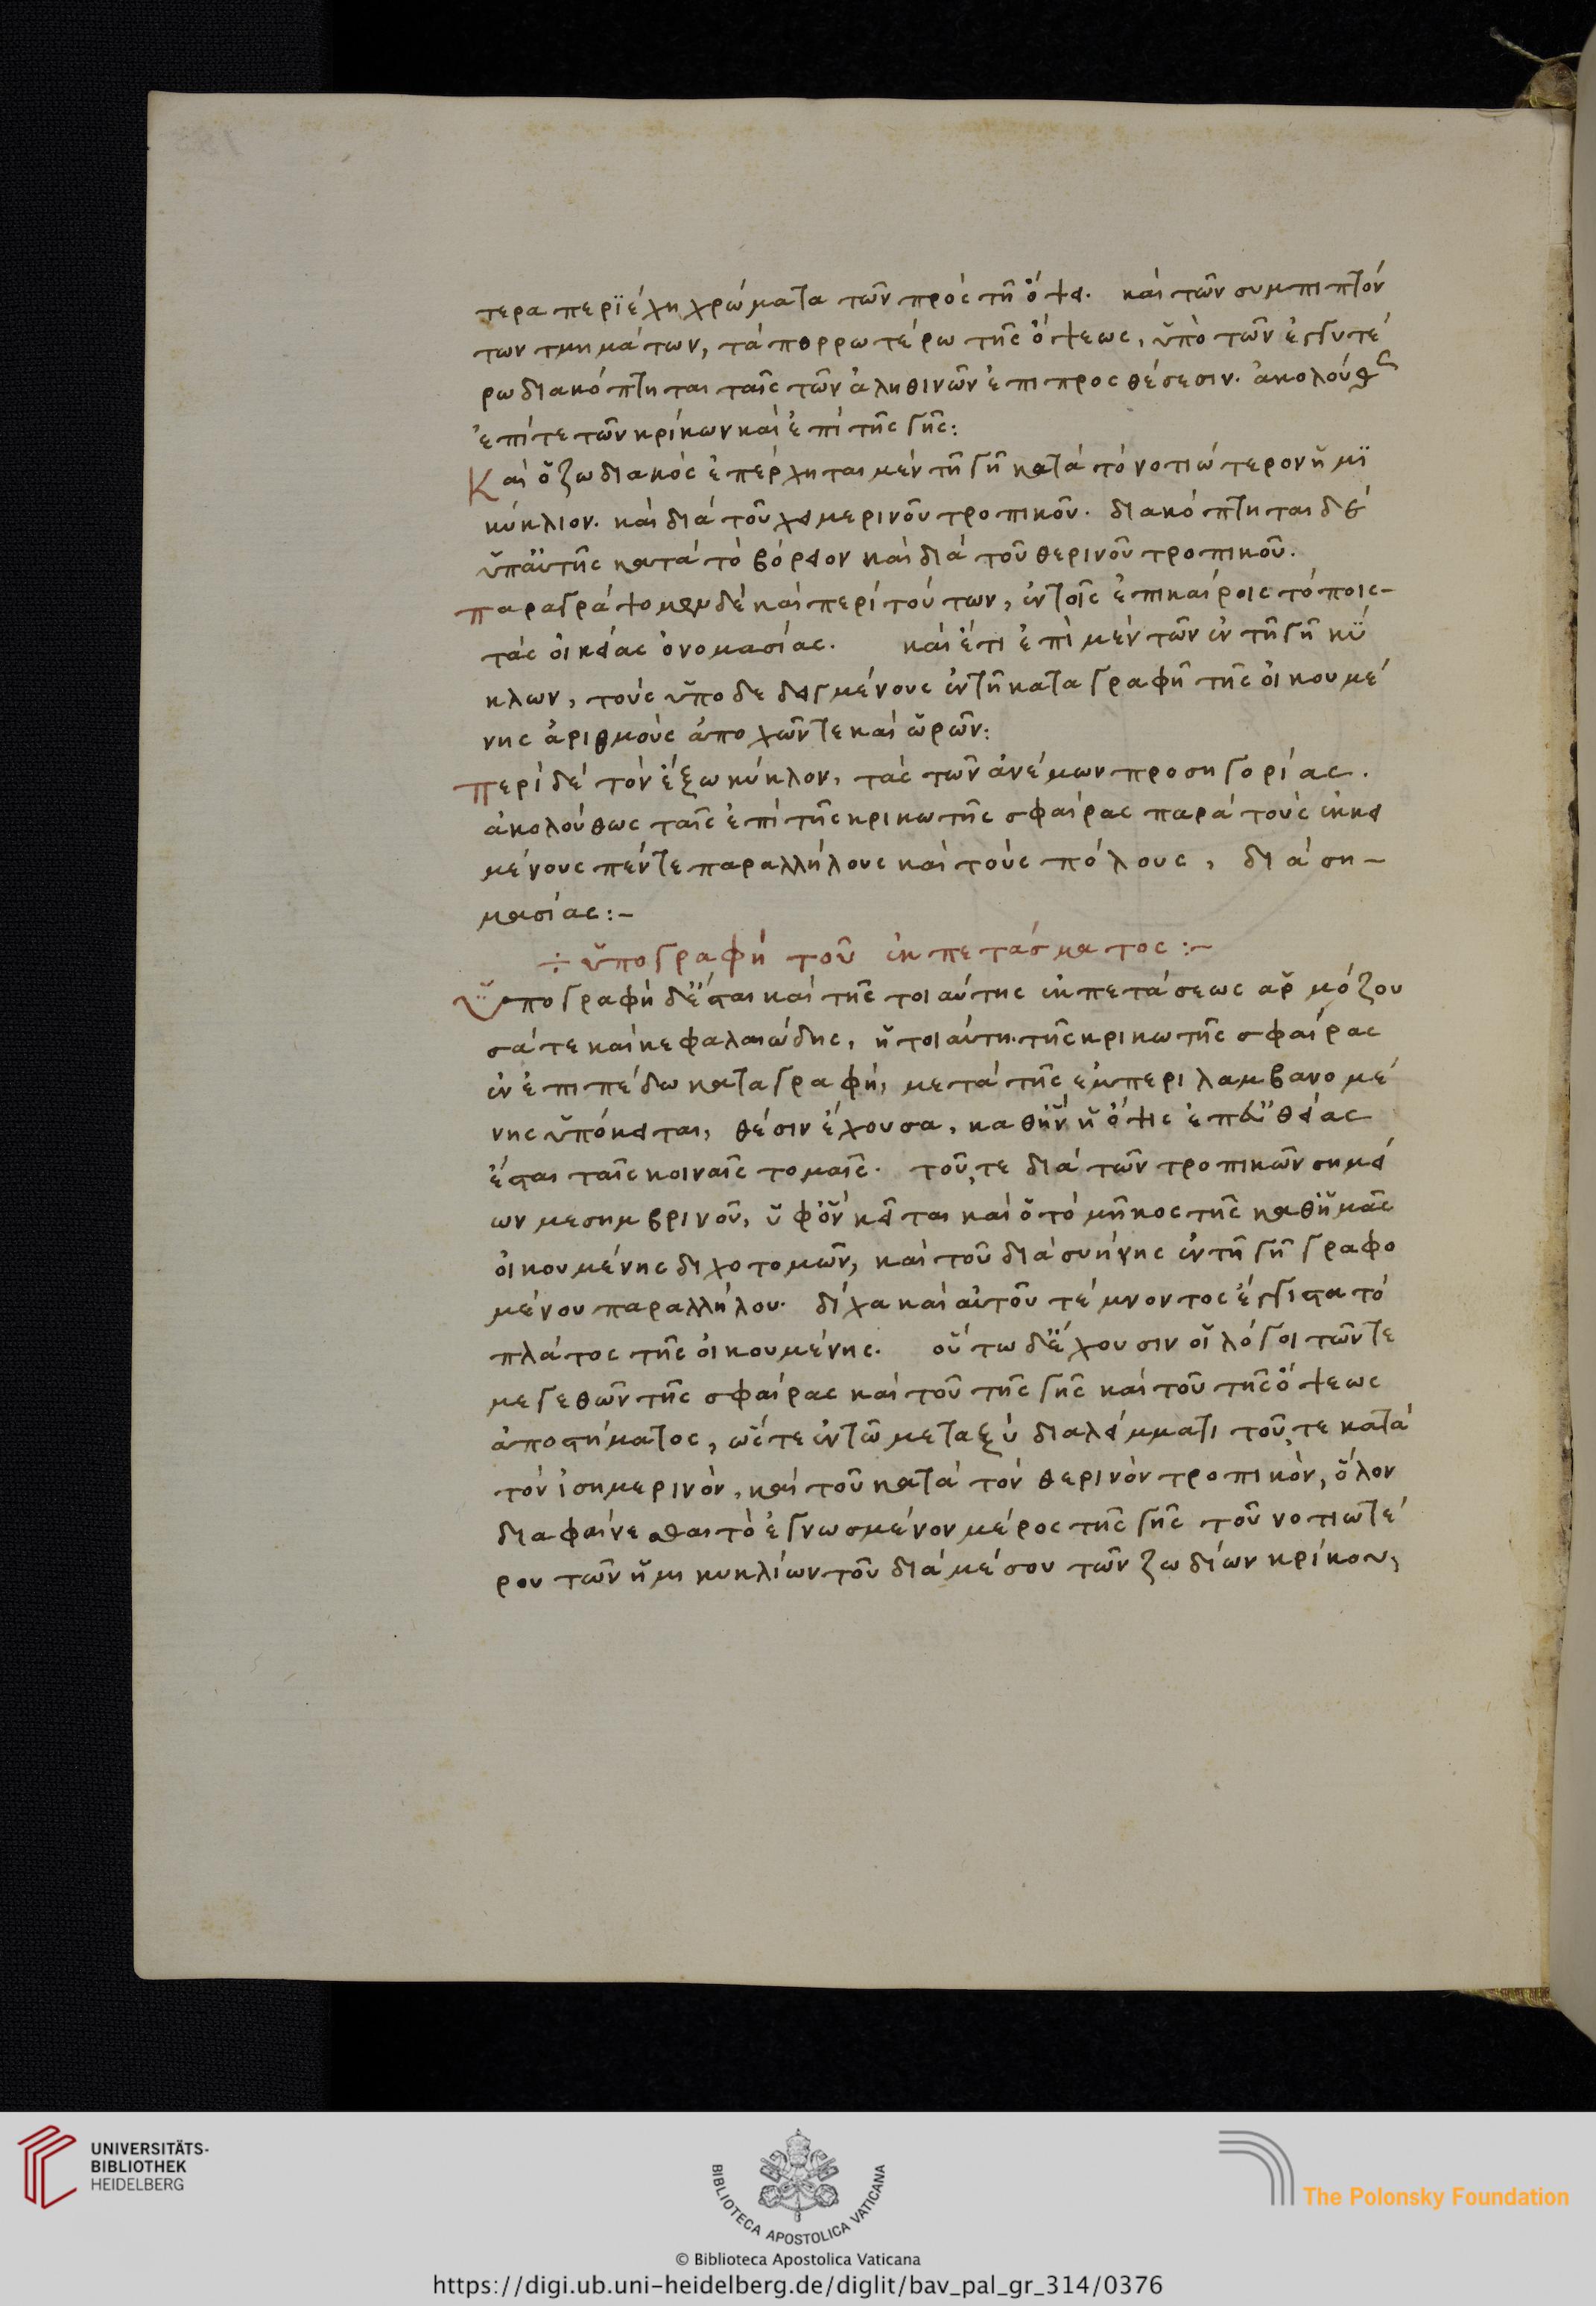 τερα περϊέχη χρώματα τῶν πρὸς τῆ ὄψει. καὶ τῶν συμπιπτόν
των τμημάτων, τὰ πορρωτέρω τῆς ὄψεως, ὑπὸ τῶν ἐγγυτέ
ρω διακόπτηται ταῖς τῶν ἀληθινῶν ἐπιπροσθέσεσιν. ἀκολούθως
ἐπί τε τῶν κρίκων καὶ ἐπὶ τῆς γῆς:
Καὶ ὁ ζωδιακὸς ἐπέρχηται μὲν τῆ γῆ κατὰ τὸ νοτιώτερον ἡμϊ
κύκλιον. καὶ διὰ τοῦ χειμερινοῦ τροπικοῦ. διακόπτηται δὲ
ὑπ' ἀυτῆς κατὰ τὸ βόρειον καὶ διὰ τοῦ θερινοῦ τροπικοῦ.
παραγράψομεν δὲ καὶ περὶ τούτων, ἐν τοῖς ἐπικαίροις τόποις-
τὰς οἰκείας ὀνομασίας. καὶ ἔτι ἐπὶ μὲν τῶν ἐν τῆ γῆ κϋ
κλων, τοὺς ὑποδεδειγμένους ἐν τῆ καταγραφῆ τῆς οἰκουμέ
νης ἀριθμοὺς ἀποχῶν τε καὶ ὡρῶν:
περὶ δὲ τὸν ἔξω κύκλον, τὰς τῶν ἀνέμων προσηγορίας.
ἀκολούθως ταῖς ἐπὶ τῆς κρικωτῆς σφαίρας παρὰ τοὺς ἐκκει
μένους πέντε παραλλήλους καὶ τοὺς πόλους, διὰ ση-
μασίας:-
÷ ὑπογραφὴ τοῦ ἐκπετάσματος:-
Ὑπογραφὴ δ' ἔσται καὶ τῆς τοιαύτης ἐκπετάσεως ἁρμόζου
σά τε καὶ κεφαλαιώδης, ἡ τοιαύτη. τῆς κρικωτῆς σφαίρας
ἐν ἐπιπέδω καταγραφή, μετὰ τῆς ἐμπεριλαμβανομέ
νης ὑπόκειται, θέσιν ἔχουσα, καθ' ἣν ἡ ὄψις ἐπ' εὐθείας
ἔσται ταῖς κοιναῖς τομαῖς. τοῦ, τε διὰ τῶν τροπικῶν σημεί
ων μεσημβρινοῦ, ὑφ' ὃν κεῖται καὶ ὁ τὸ μῆκος τῆς καθ' ἡμᾶς
οἰκουμένης διχοτομῶν, καὶ τοῦ διὰ συήνης ἐν τῆ γῆ γραφο
μένου παραλλήλου. δίχα καὶ αὐτοῦ τέμνοντος ἔγγιστα τὸ
πλάτος τῆς οἰκουμένης. οὕτω δ' ἔχουσιν οἱ λόγοι τῶν τε
μεγεθῶν τῆς σφαίρας καὶ τοῦ τῆς γῆς καὶ τοῦ τῆς ὄψεως
ἀποστήματος, ὥς τε ἐν τῶ μεταξὺ διαλείμματι τοῦ, τε κατὰ
τὸν ἰσημερινὸν, καὶ τοῦ κατὰ τὸν θερινὸν τροπικὸν, ὅλον
διαφαίνεσθαι τὸ ἐγνωσμένον μέρος τῆς γῆς τοῦ νοτιωτέ
ρου τῶν ἡμικυκλίων τοῦ διὰ μέσου τῶν ζωδίων κρίκου,
UNIVERSITÄTS-
BIBLIOTHEK
HEIDELBERG
BIBLIOTECA APOSTOLICA VATICANA
The Polonsky Foundation
© Biblioteca Apostolica Vaticana
https://digi.ub.uni-heidelberg.de/diglit/bav_pal_gr_314/0376